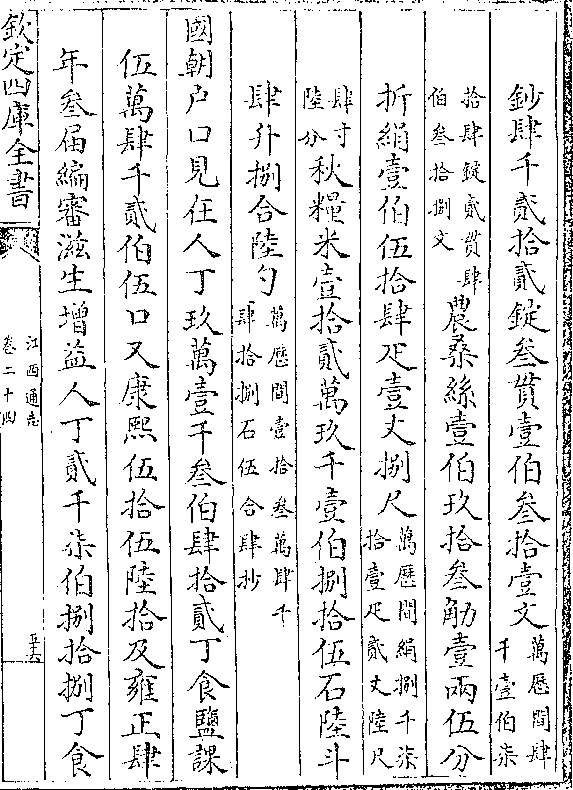 鈔肆千貳拾貳錠叁貫壹伯叁拾壹文萬歷間肆千壹伯柒
拾肆錠貳貫肆伯叁拾捌文農桑絲壹伯玖拾叁觔壹兩伍分
折絹壹伯伍拾肆疋壹丈捌尺萬歷間絹捌千柒拾壹疋貳丈陸尺
肆寸陸分秋糧米壹拾貳萬玖千壹伯捌拾伍石陸斗
肆升捌合陸勺萬歷間壹拾叁萬肆千肆拾捌石伍合肆抄
國朝户口見在人丁玖萬壹千叁伯肆拾貳丁食鹽課
伍萬肆千貳伯伍口又康熙伍拾伍陸拾及雍正肆
年叁届編審滋生增益人丁貳千柒伯捌拾捌丁食
欽定四庫全書
江西通志
卷二十四